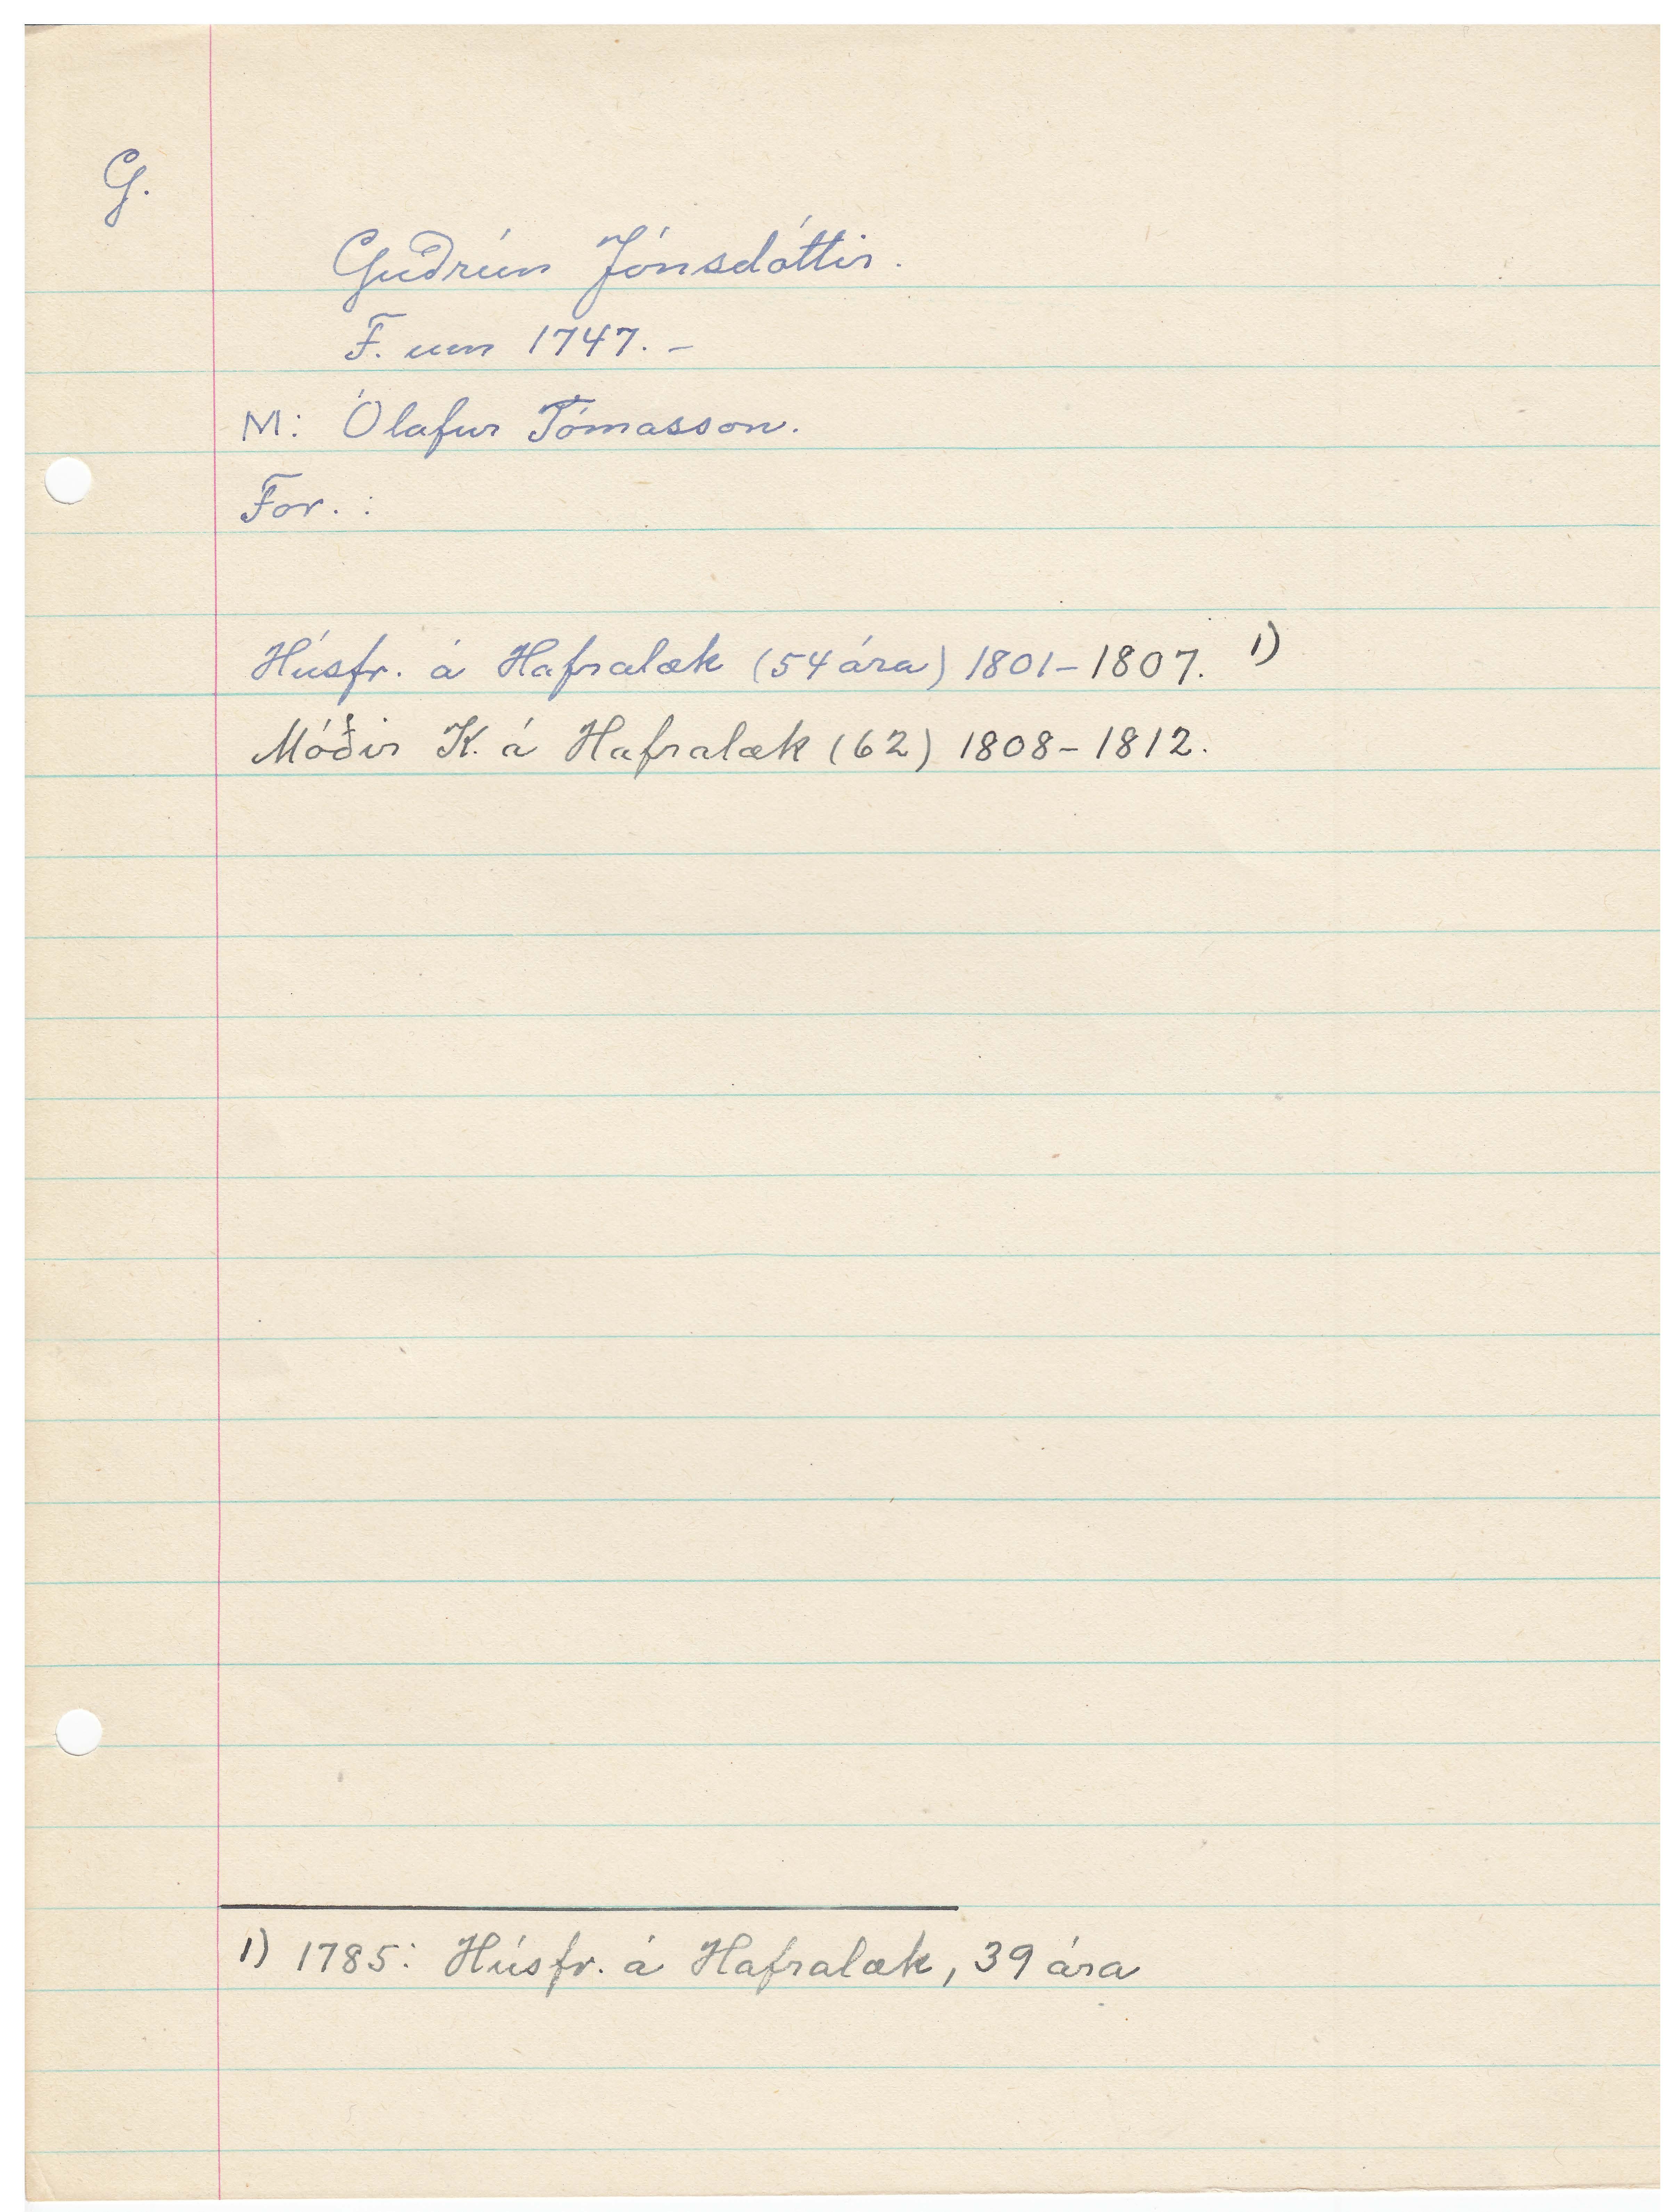 G.
Guðrún Jónsdóttir.
F. um 1747. –
M: Ólafur Tómasson.
For. :
Húsfr. á Hafralæk (54 ára) 1801 – 1807. 1)
Móðir K. á Hafralæk (62) 1808 – 1812.
1) 1785: Húsfr. á Hafralæk, 39 ára